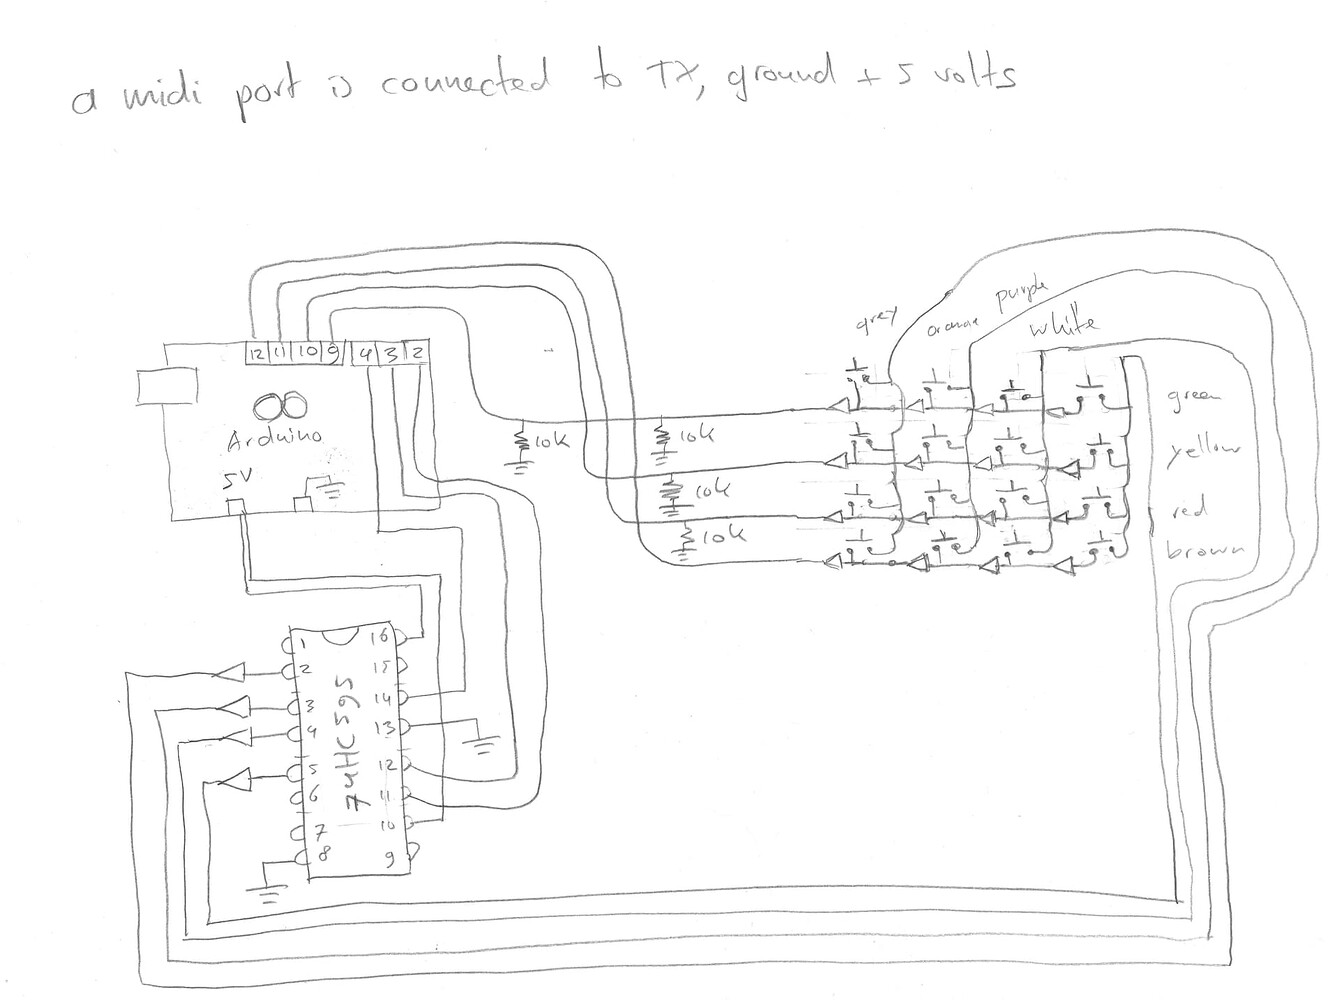 a midi port is connected to TX, ground + 5 volts
grey
orange
purple
white
12 11 10 9 4 3 2
green
Arduino
10k
10k
yellow
5V
10k
red
10k
brown
1 16
2 15
3 14
4 13
5 12
6 11
7 10
8 9
74HC595